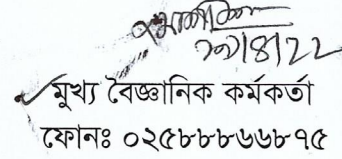 ২০/৪/22
মুখ্য বৈজ্ঞানিক কর্মকর্তা
ফোনঃ ০২৫৮৮৮৬৬৮৭৫